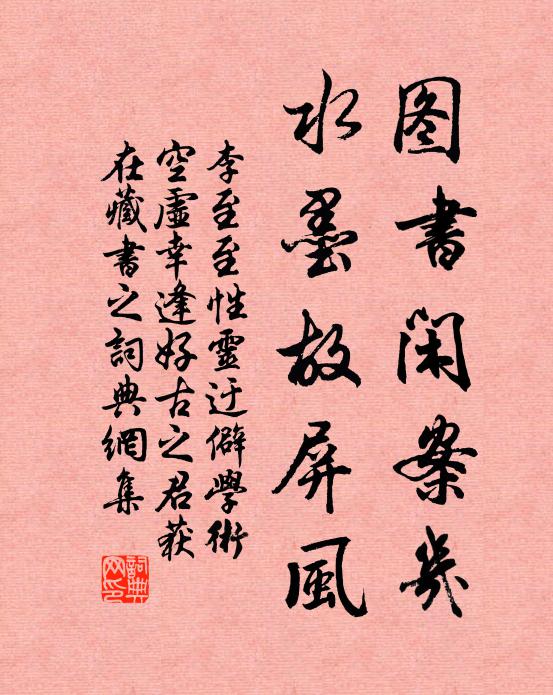 图書闲案几
水墨故屏風
李至至性靈迂僻學術
空虛幸逢好古之君获
在藏書之詞典網集
詞典
网印